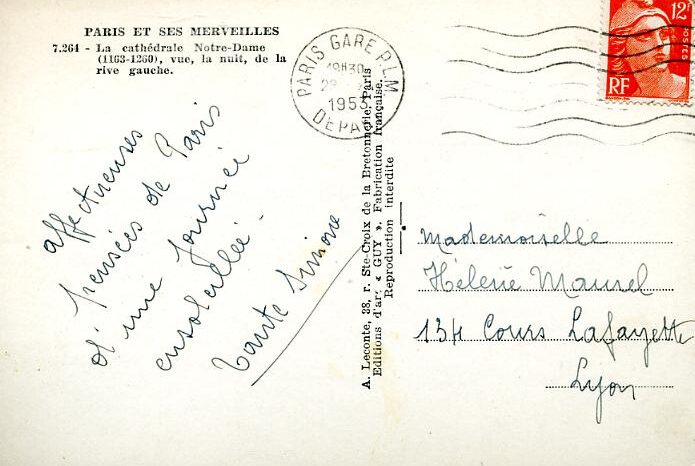 PARIS ET SES MERVEILLES
7.264 - La cathédrale Notre-Dame
(1163-1260), vue, la nuit, de la
rive gauche.
PARIS GARE P.L.M
19H30
1953
DEPART
12F
POSTES
RF
affectueuses
pensées de Paris
d'une journée
ensoleillée -
Tante Simone
A. Leconte, 38, r. Ste-Croix de la Bretonnerie, Paris
Editions d'art « GUY ». Fabrication française.
Reproduction interdite
Mademoiselle
Hélène Maurel
134 Cours Lafayette
Lyon